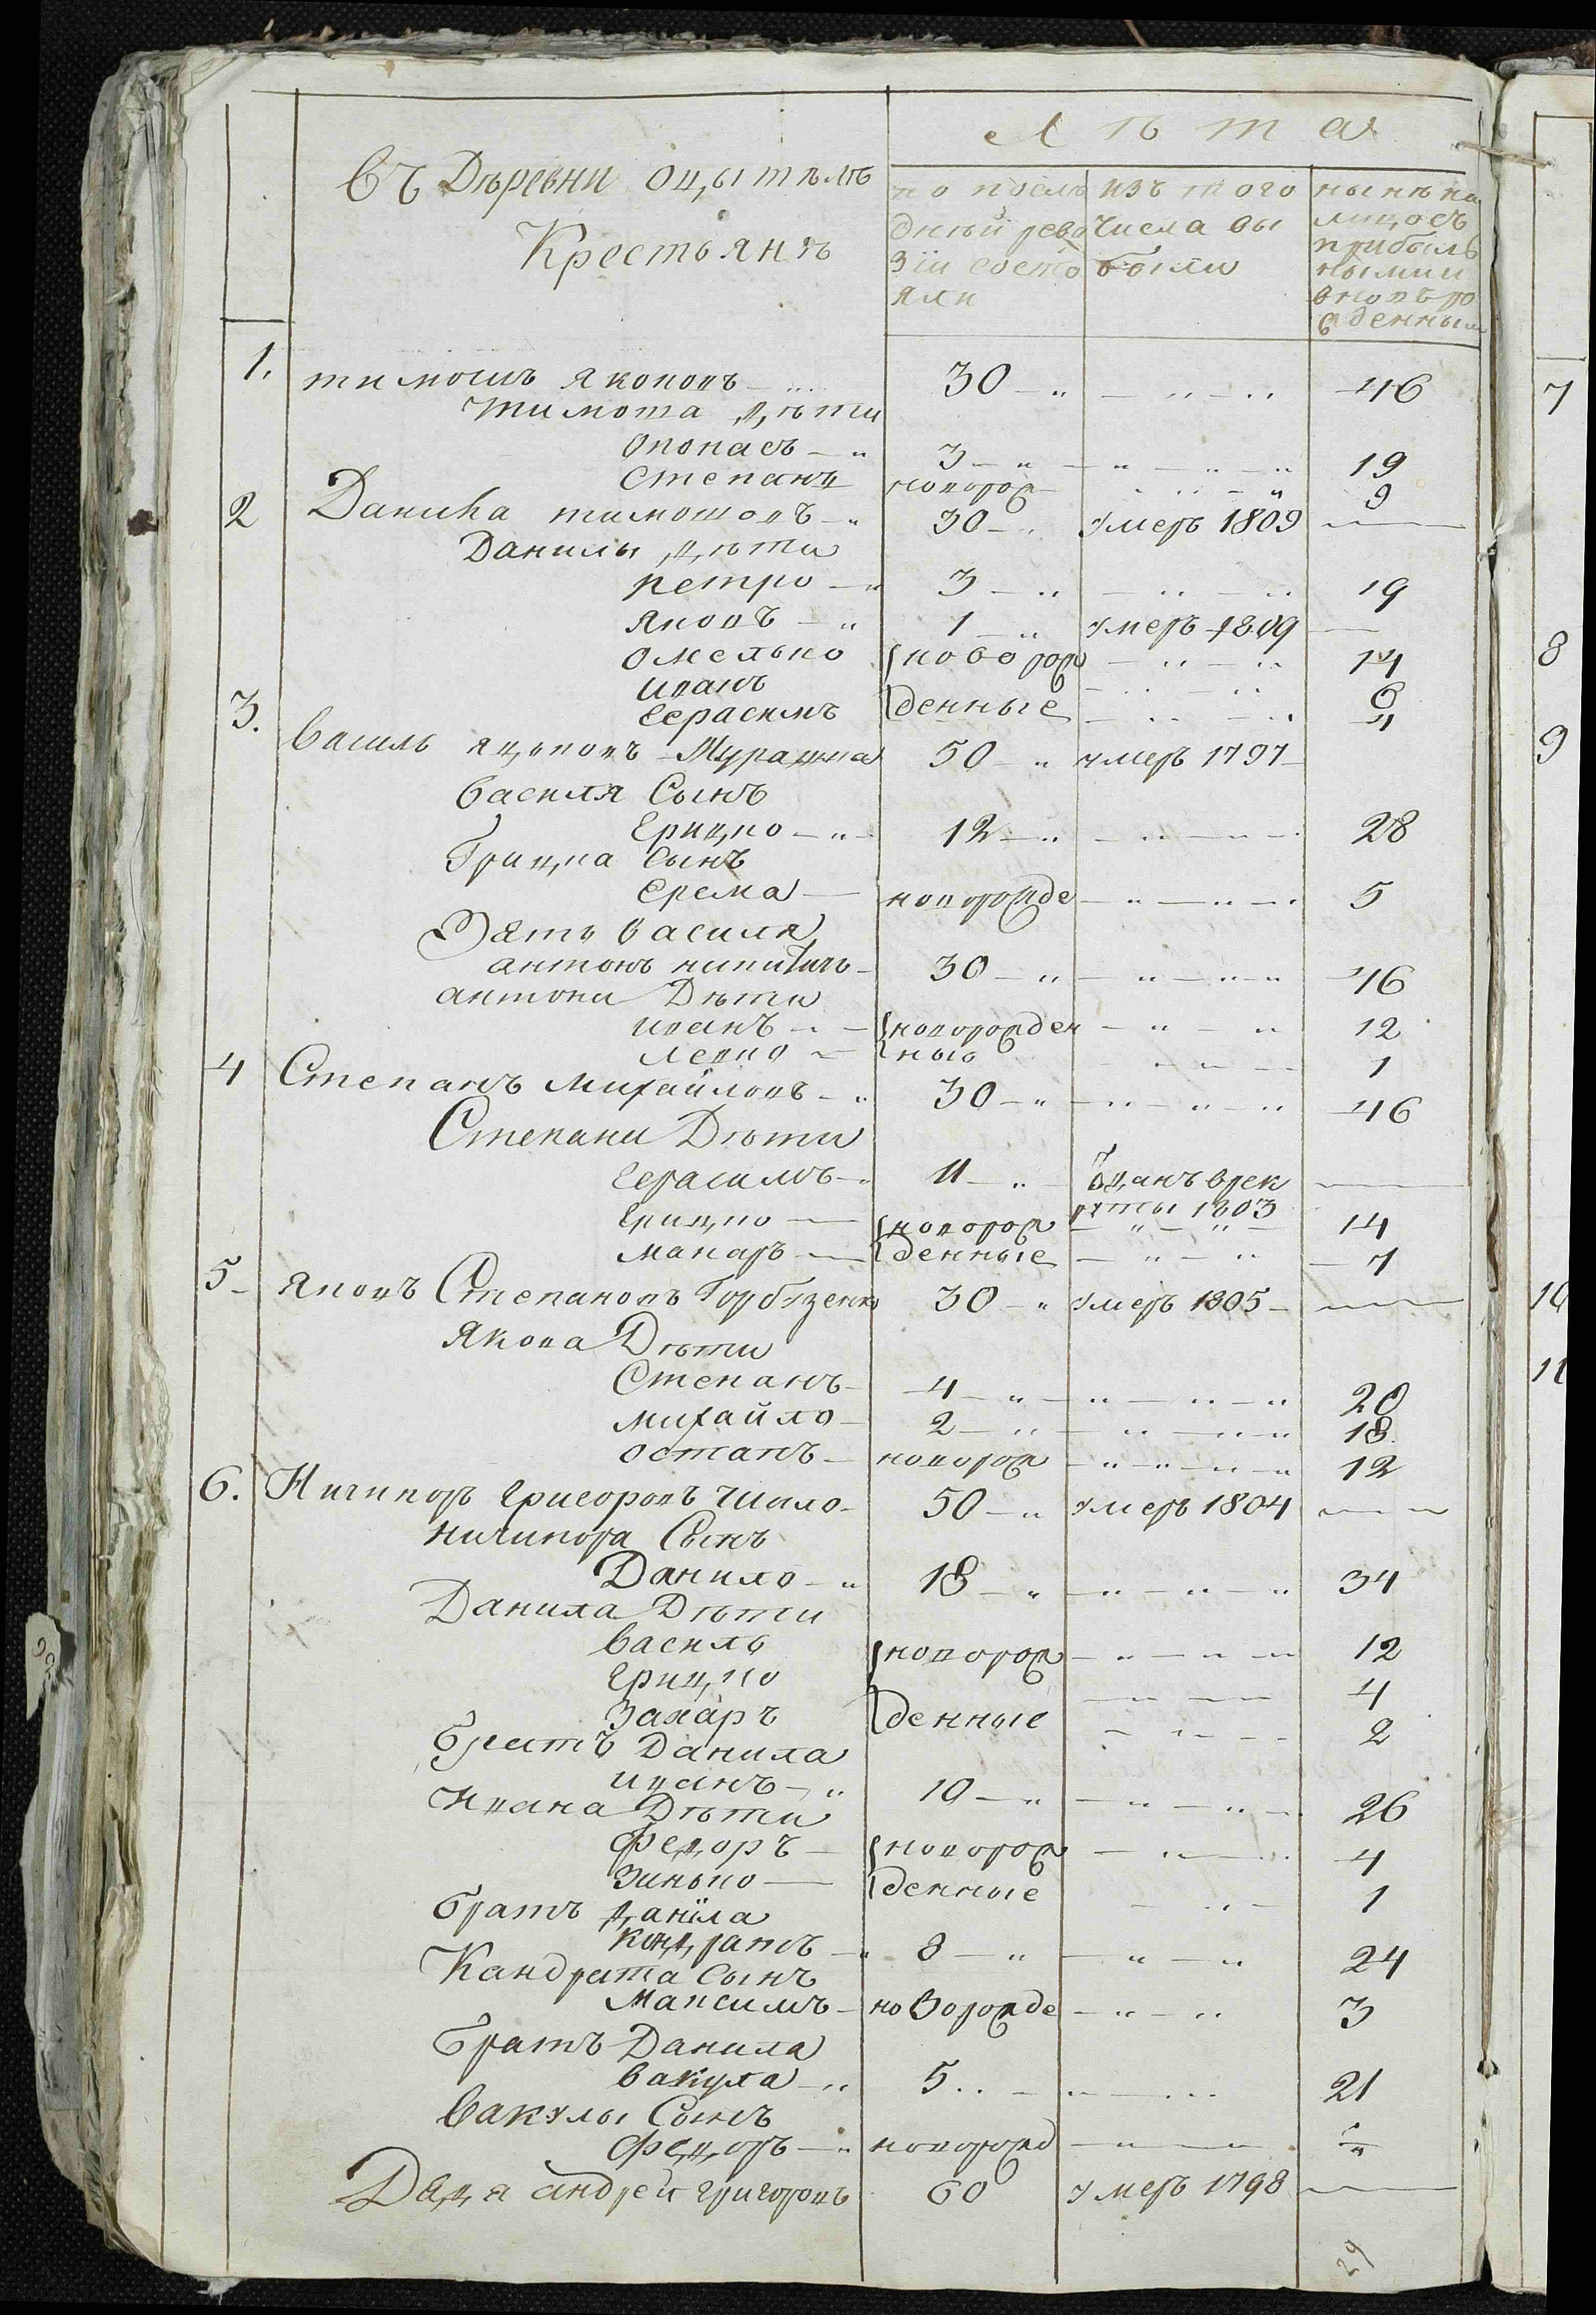 Лѣта
въ Деревни
Крестьянъ
по послѣ дней реви зіи состо яли
изъ того числа вы были
нынѣ на лицо съ прибыль ными и вновь ро жденными
1. тимошъ якововъ 30 46
тимоша дѣти
опонасъ 3 19
степанъ новорож 9
2 Данила тимошовъ 30 умеръ 1809
Данилы дѣти
петро 3 19
яковъ 1 умеръ 1809
омелько { новорож 14
иванъ 6
герасимъ { денные 4
3. василь яцьковъ 50 умеръ 1797
василя Сынъ
грицко 12 28
Грицка Сынъ
ерема новорожде 5
Зять василя
антонъ 30 46
антона Дѣти
иванъ { новорожден 12
левко { ные 1
4 Степанъ михайловъ 30 46
Степана Дѣти
герасимъ 11 отданъ врек руты 1803
грицко { новорож 14
макаръ { денные 7
5 яковъ Степановъ Горбузенко 30 умеръ 1805
якова Дѣти
Степанъ 4 20
михайло 2 18
остапъ новорож 12
6. Ничипоръ григоровъ 50 умеръ 1804
ничипора Сынъ
Данило 18 34
Данила Дѣти
василь { новорож 12
грицко 4
захаръ { денные 2
братъ Данила
иванъ 10 26
ивана Дѣти
федоръ { новорож 4
зинько { денные 1
братъ даніла
кондратъ 8 24
Кандрата сынъ
максимъ новорожде 3
братъ Данила
вакула 5 21
вакулы Сынъ
федоръ новорожд
Дядя андрей григоровъ 60 умеръ 1798
29
7
8
9
10
11